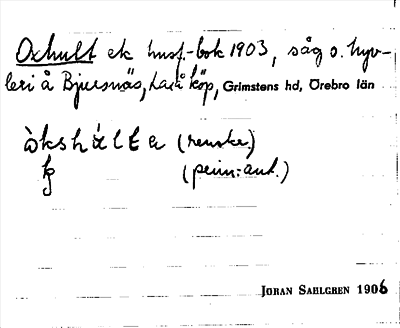 Oxhult ek husf.-bok 1903, såg o. hyv-
leri å Bjursnäs, Lerbäck, Grimstens hd, Örebro län
òkshúlta (renskr.)
(penn:ant.)
JÖRAN SAHLGREN 1906